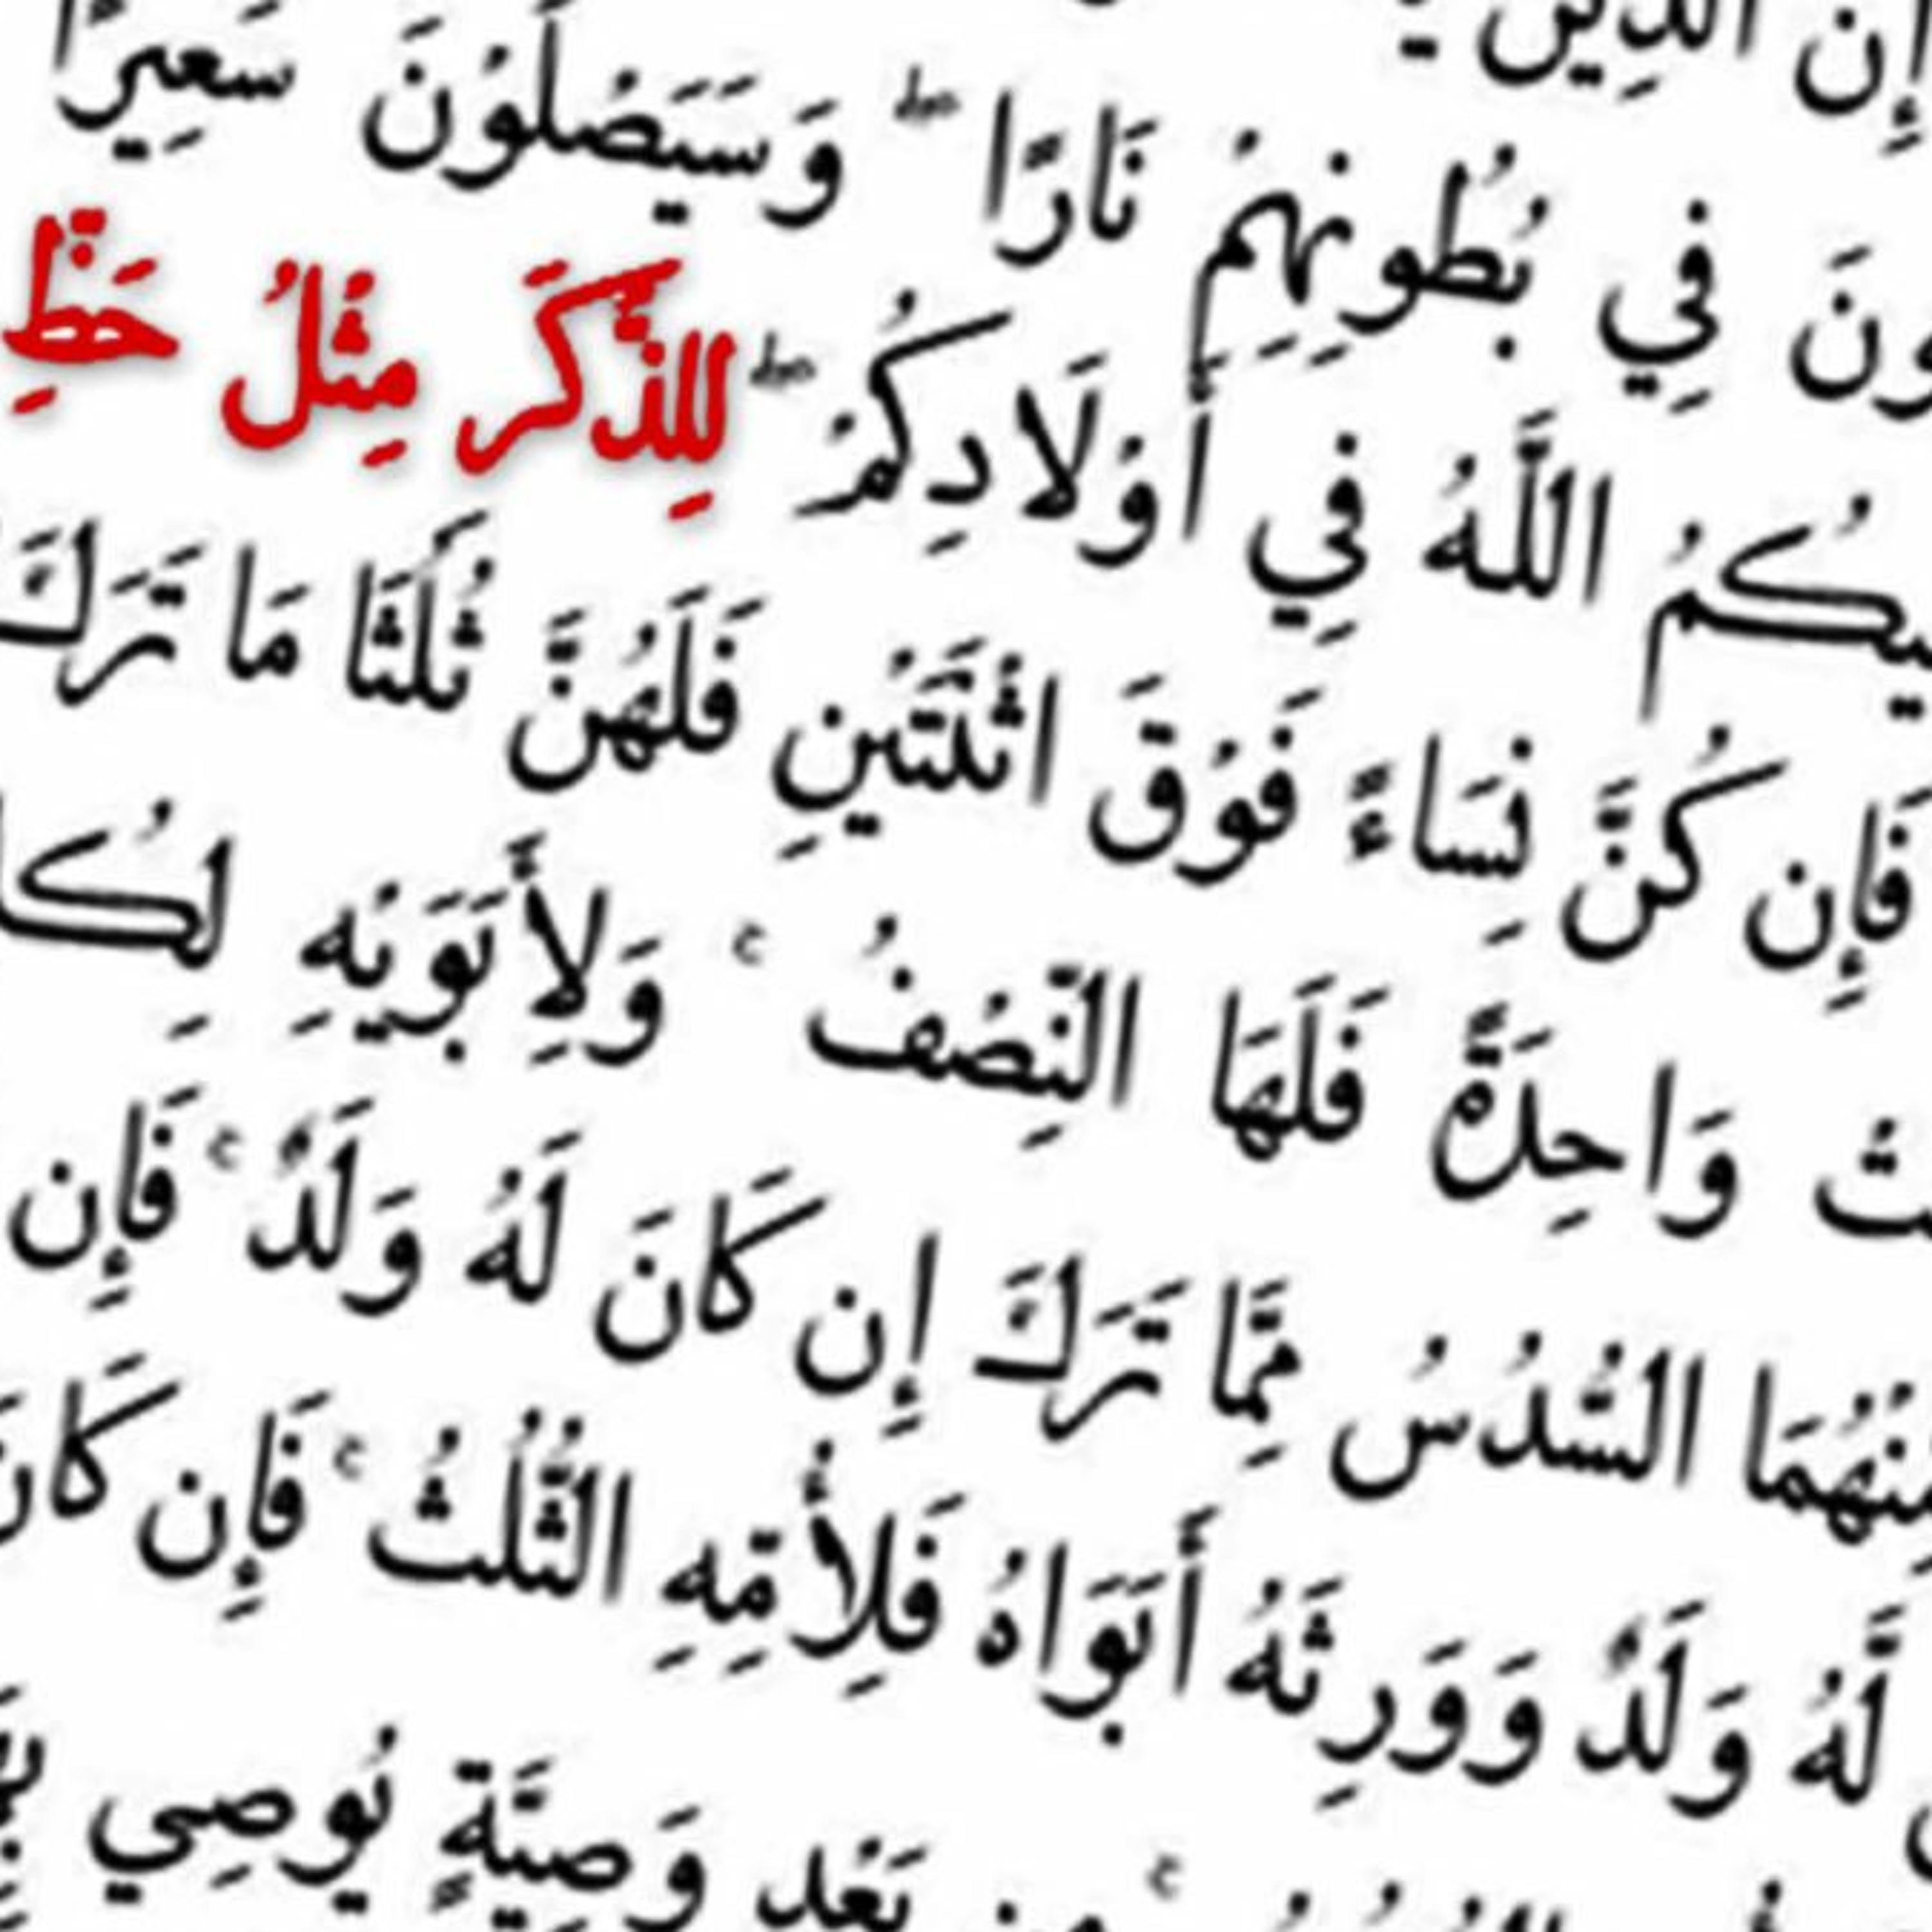 إِن الَّذِينَ يَ
ونَ فِي بُطُونِهِمْ نَارًا ۖ وَسَيَصْلَوْنَ سَعِيرًا
يكُمُ اللَّهُ فِي أَوْلَادِكُمْ ۖ لِلذَّكَرِ مِثْلُ حَظِّ
فَإِن كُنَّ نِسَاءً فَوْقَ اثْنَتَيْنِ فَلَهُنَّ ثُلُثَا مَا تَرَكَ
تْ وَاحِدَةً فَلَهَا النِّصْفُ ۚ وَلِأَبَوَيْهِ لِكُ
نْهُمَا السُّدُسُ مِمَّا تَرَكَ إِن كَانَ لَهُ وَلَدٌ ۚ فَإِن
لَّهُ وَلَدٌ وَوَرِثَهُ أَبَوَاهُ فَلِأُمِّهِ الثُّلُثُ ۚ فَإِن كَانَ
ۚ مِن بَعْدِ وَصِيَّةٍ يُوصِي بِهَا